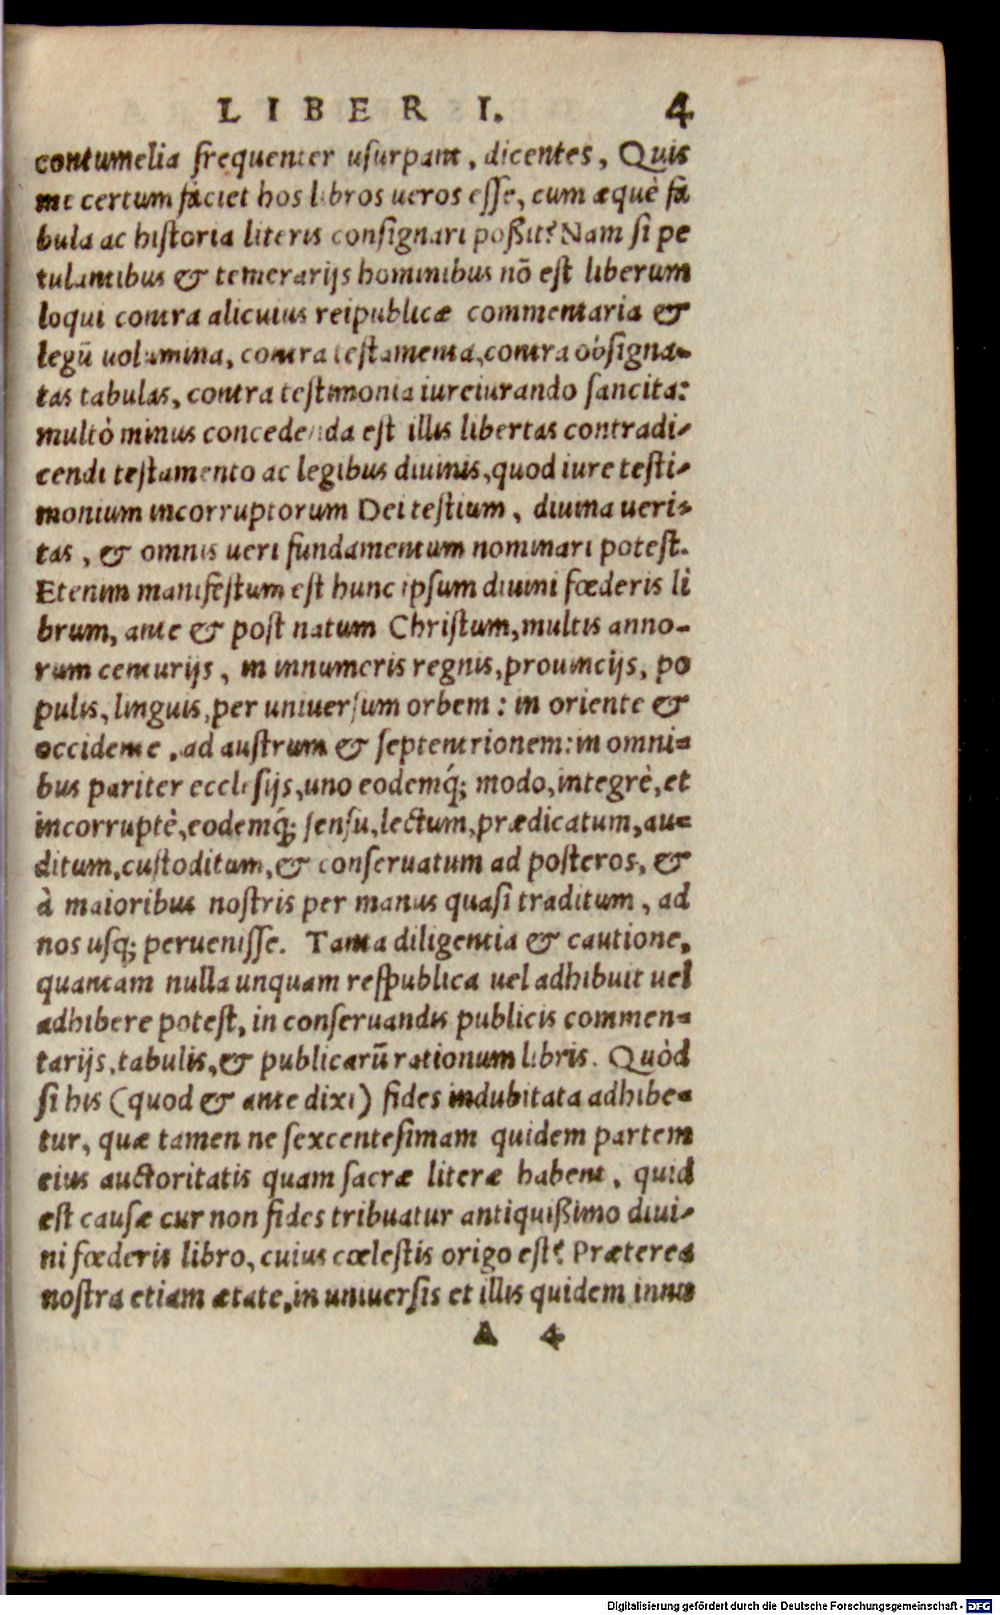 LIBER I. 4
contumelia frequenter uſurpant, dicentes, Quis
me certum faciet hos libros ueros eſſe, cum æquè fa
bula ac hiſtoria literis conſignari poßit? Nam ſi pe
tulantibus & temerarijs hominibus nō eſt liberum
loqui contra alicuius reipublicæ commentaria &
legū uolumina, contra teſtamenta, contra obſigna-
tas tabulas, contra teſtimonia iureiurando ſancita:
multò minus concedenda eſt illis libertas contradi-
cendi teſtamento ac legibus diuinis, quod iure teſti-
monium incorruptorum Dei teſtium, diuina ueri-
tas, & omnis ueri fundamentum nominari poteſt.
Etenim manifeſtum eſt hunc ipſum diuini fœderis li
brum, ante & poſt natum Chriſtum, multis anno-
rum centurijs, in innumeris regnis, prouincijs, po
pulis, linguis, per uniuerſum orbem: in oriente &
occidente, ad auſtrum & ſeptentrionem: in omni-
bus pariter eccleſijs, uno eodemq́; modo, integrè, et
incorruptè, eodemq́; ſenſu, lectum, prædicatum, au-
ditum, cuſtoditum, & conſeruatum ad poſteros, &
à maioribus noſtris per manus quaſi traditum, ad
nos uſq; perueniſſe. Tanta diligentia & cautione,
quantam nulla unquam reſpublica uel adhibuit uel
adhibere poteſt, in conſeruandis publicis commen-
tarijs, tabulis, & publicarū rationum libris. Quòd
ſi his (quod & ante dixi) fides indubitata adhibe-
tur, quæ tamen ne ſexcenteſimam quidem partem
eius auctoritatis quam ſacræ literæ habent, quid
eſt cauſæ cur non fides tribuatur antiquißimo diui-
ni fœderis libro, cuius cœleſtis origo eſt? Præterea
noſtra etiam ætate, in uniuerſis et illis quidem innu
A 4
Digitalisierung gefördert durch die Deutsche Forschungsgemeinschaft - DFG